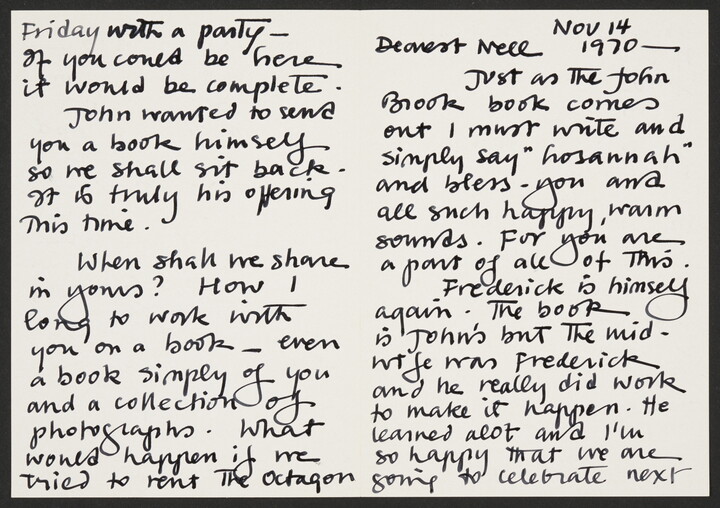 Nov 14
Dearest Nell 1970—
Just as the John
Brook book comes
out I must write and
simply say "hosannah"
and bless-you and
all such happy, warm
sounds. For you are
a part of all of this.
Frederick is himself
again. The book
is John's but the mid-
wife was Frederick
and he really did work
to make it happen. He
learned alot and I'm
so happy that we are
going to celebrate next
Friday with a party—
If you could be here
it would be complete.
John wanted to send
you a book himself
so we shall sit back.
It is truly his offering
this time.
When shall we share
in yours? How I
long to work with
you on a book — even
a book simply of you
and a collection of
photographs. What
would happen if we
tried to rent the Octagon